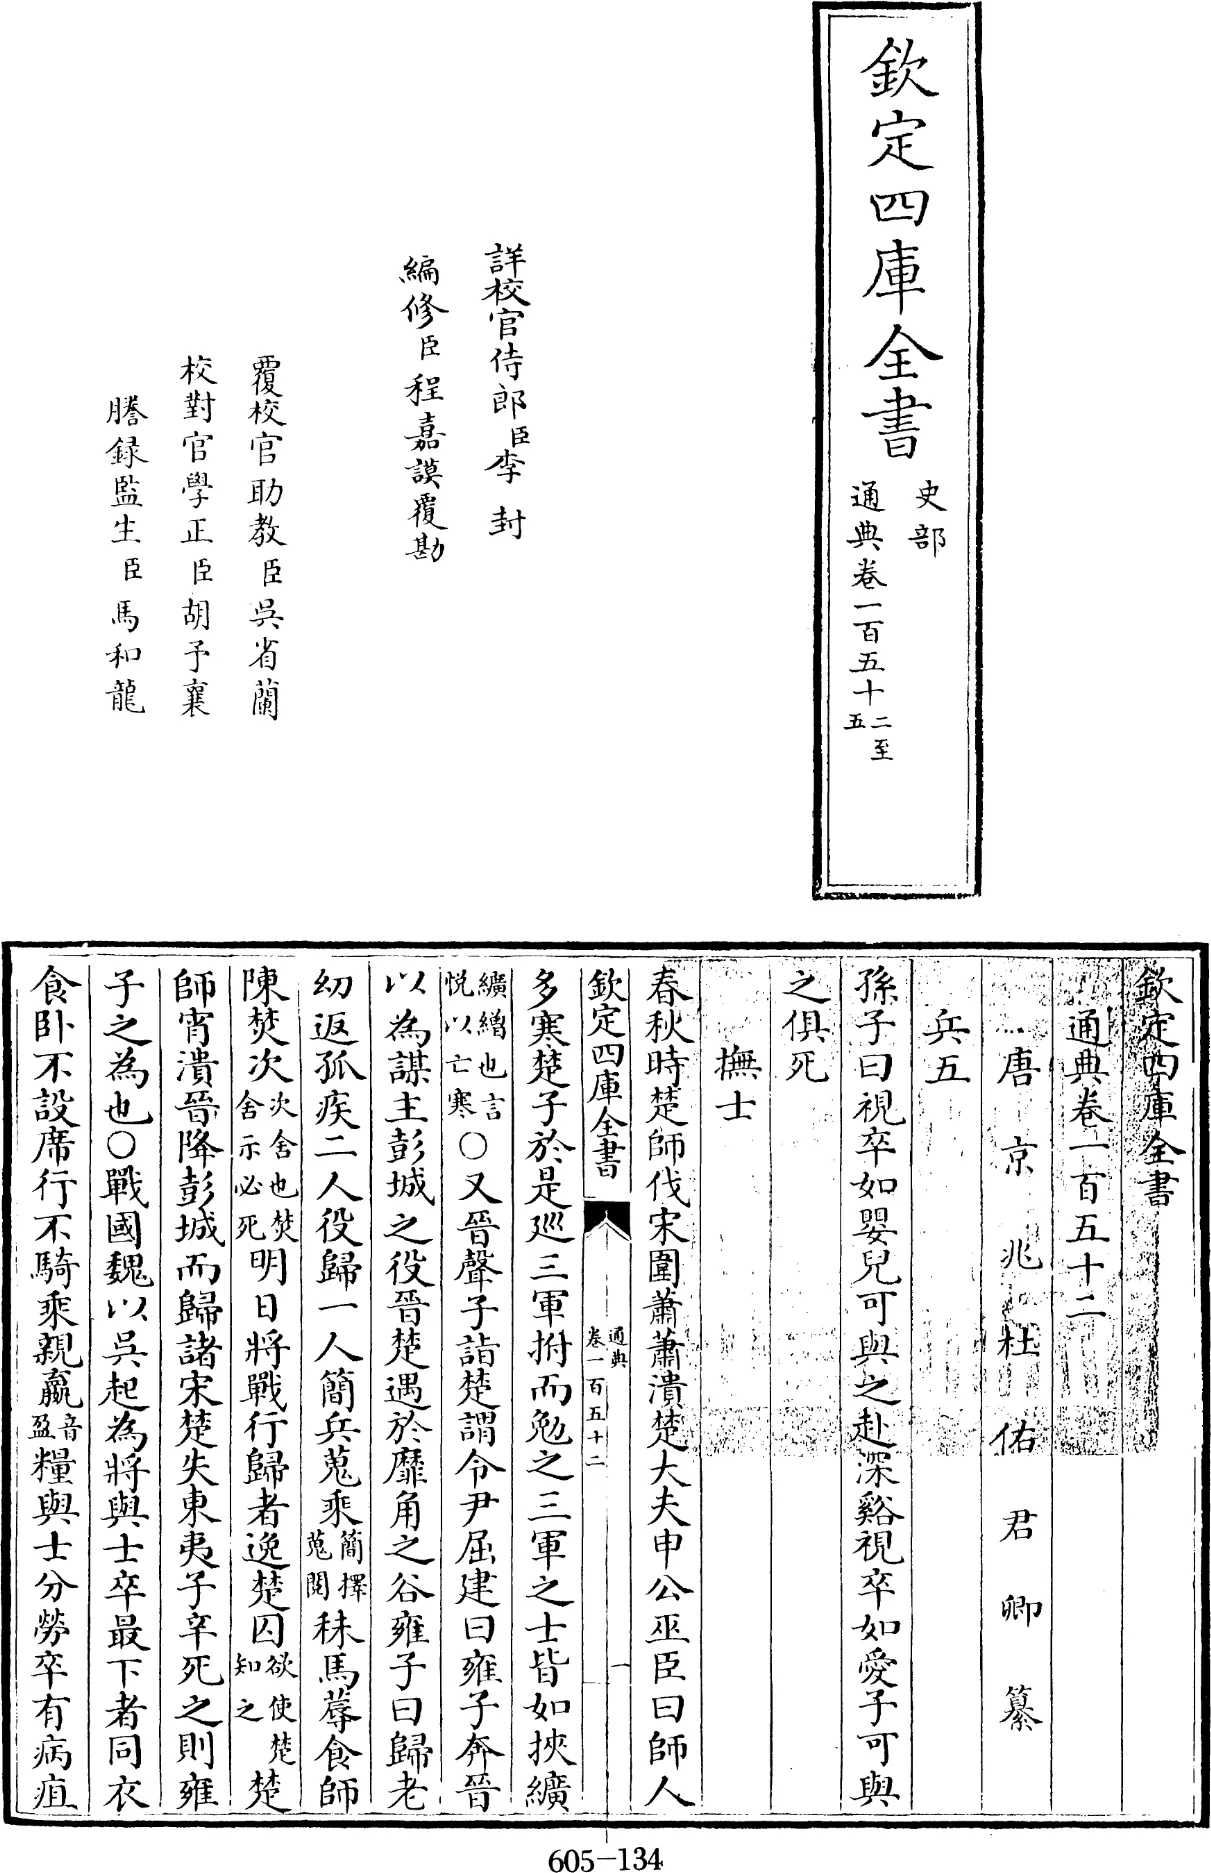 欽定四庫全書
史部
通典卷一百五十二至
五
詳校官侍郎臣李封
編修臣程嘉謨覆勘
覆校官助教臣吳省蘭
校對官學正臣胡予襄
謄錄監生臣馬和龍
欽定四庫全書
通典卷一百五十二
唐京兆杜佑君卿纂
兵五
孫子曰視卒如嬰兒可與之赴深谿視卒如愛子可與
之俱死
撫士
春秋時楚師伐宋圍蕭蕭潰楚大夫申公巫臣曰師人
欽定四庫全書
通典
卷一百五十二
一
多寒楚子於是巡三軍拊而勉之三軍之士皆如挾纊
纊繒也言悅以亡寒○又晉聲子詣楚謂令尹屈建曰雍子奔晉
以為謀主彭城之役晉楚遇於靡角之谷雍子曰歸老
幼返孤疾二人役歸一人簡兵蒐乘簡擇蒐閱秣馬蓐食師
陳焚次次舍也焚舍示必死明日將戰行歸者逸楚囚欲使楚知之楚
師宵潰晉降彭城而歸諸宋楚失東夷子辛死之則雍
子之為也○戰國魏以吳起為將與士卒最下者同衣
食卧不設席行不騎乘親贏音盈糧與士分勞卒有病疽
605-134